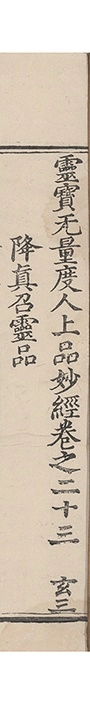 靈寶无量度人上品妙經卷之二十三 玄三
降真召靈品